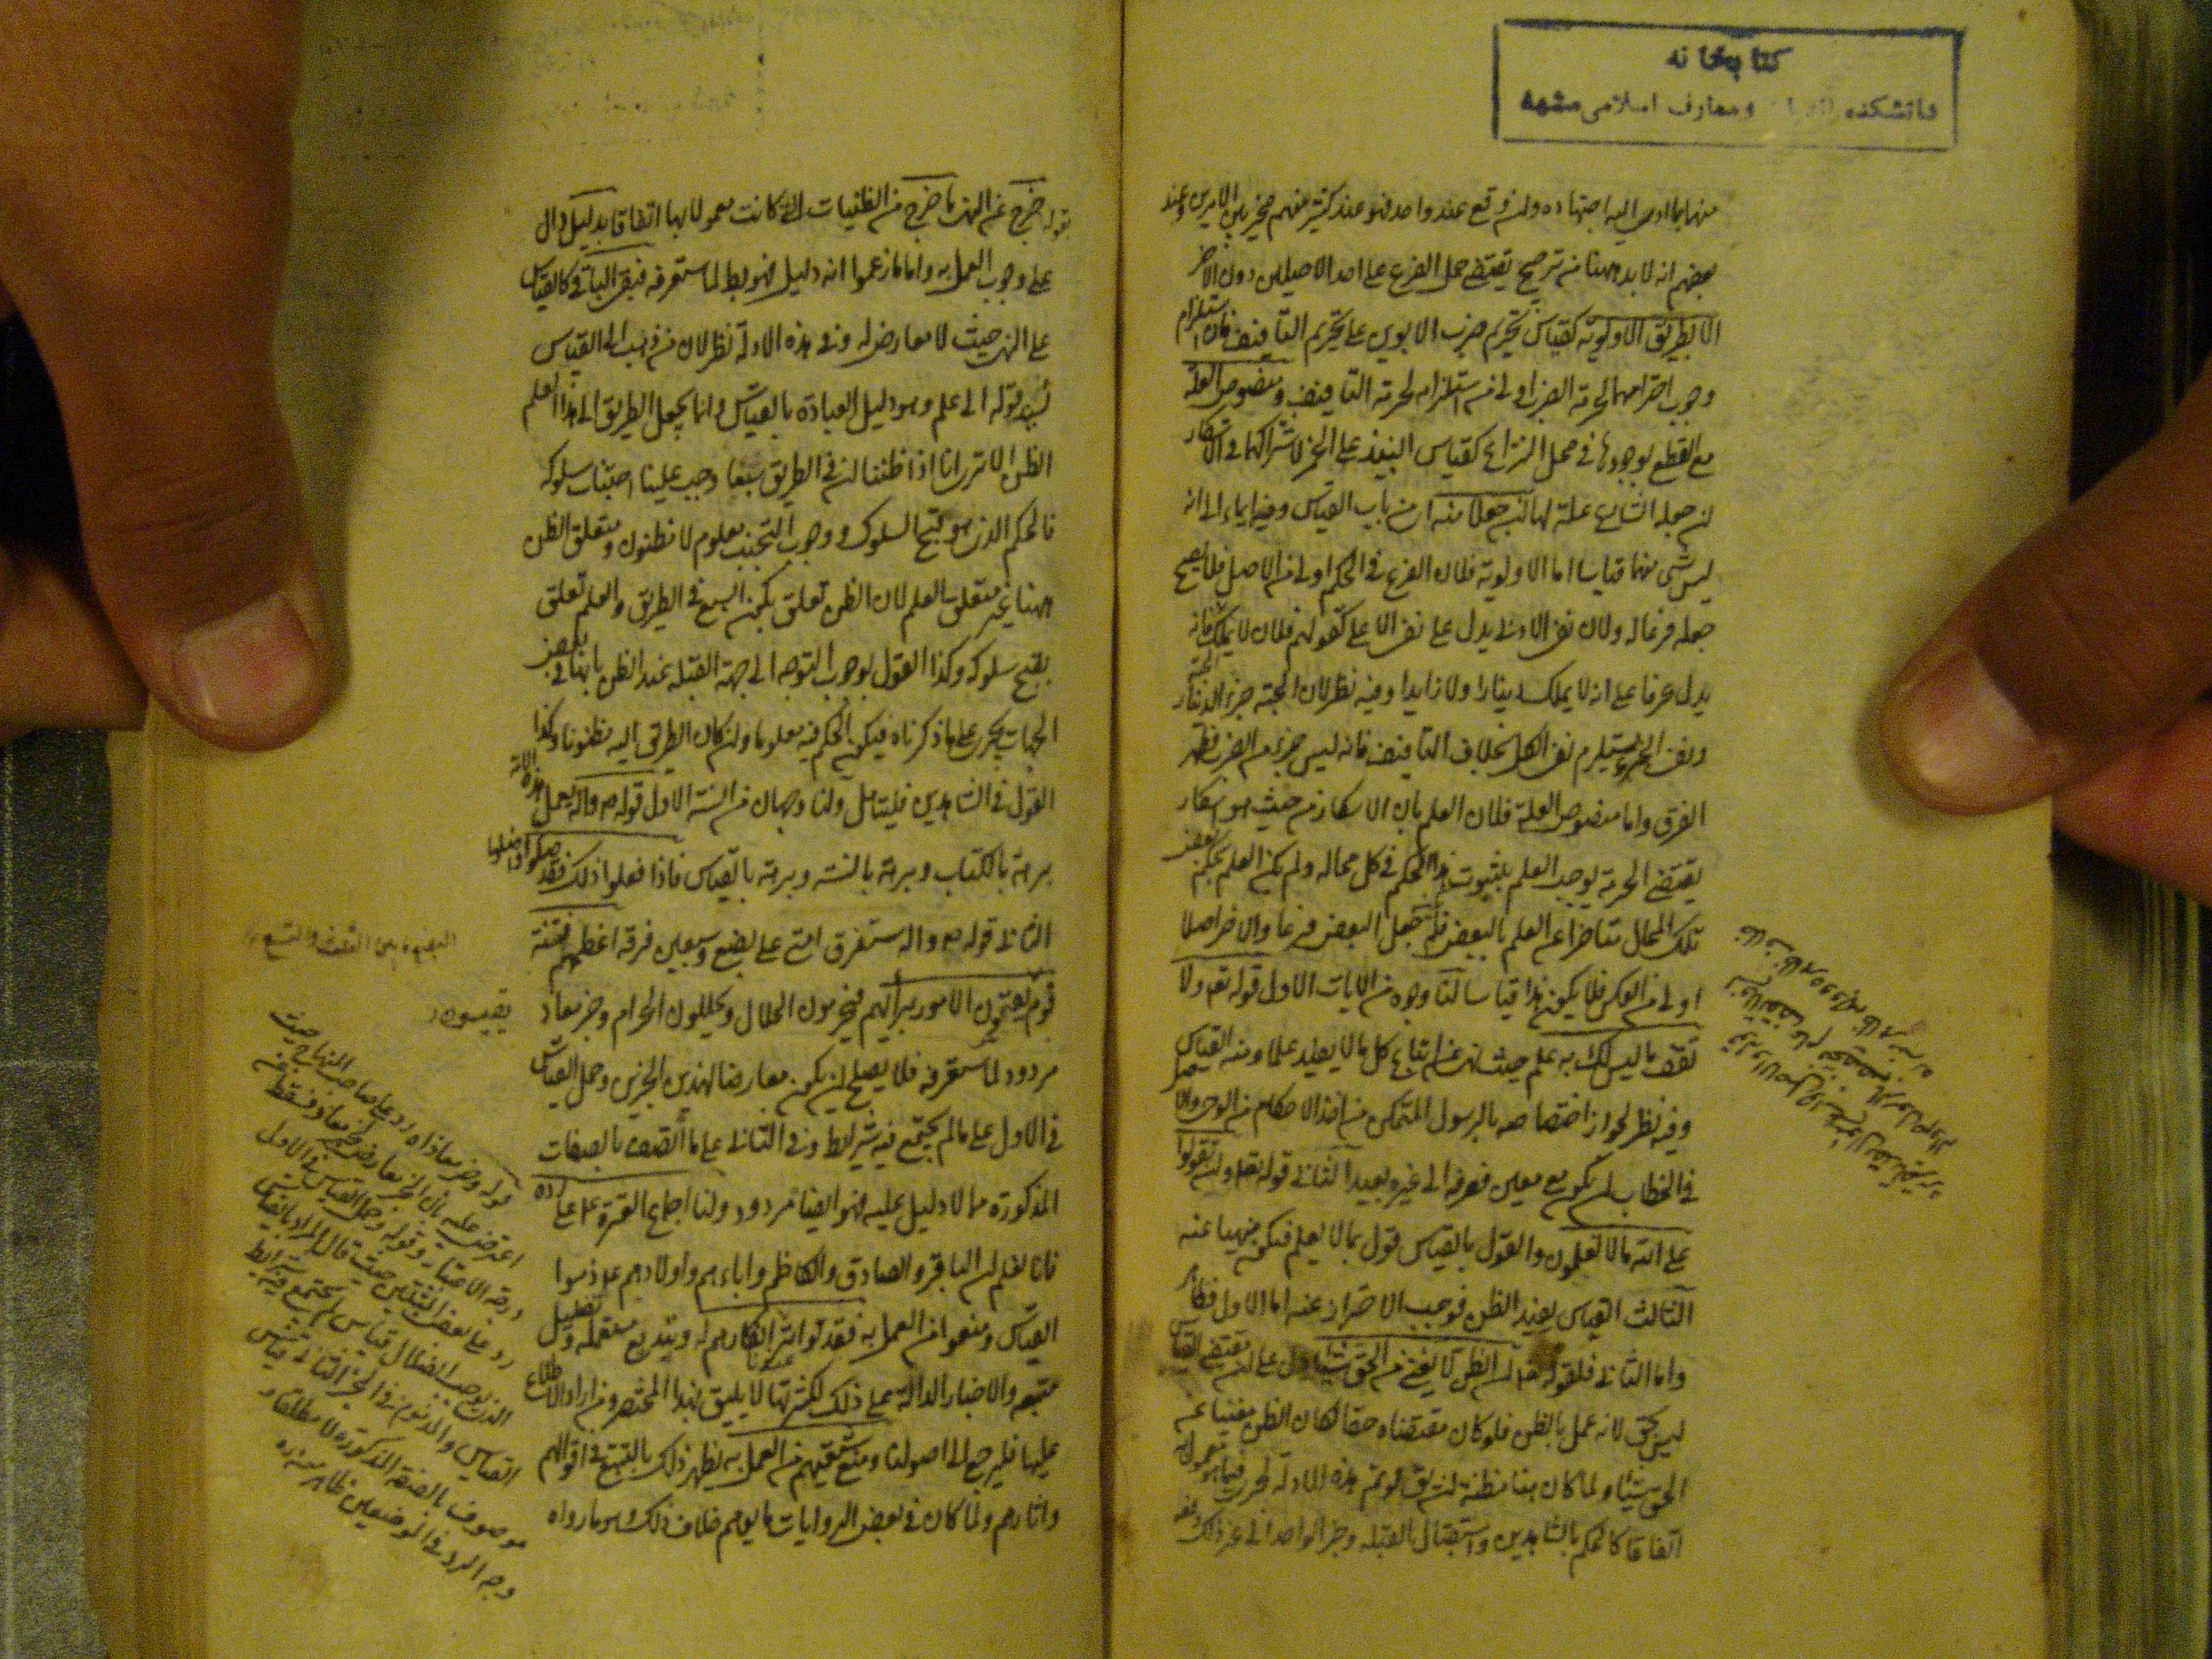 كتابخانه
دانشكده ومعارف اسلامى مشهد
منها بما ادى اليه اجتهاده وان وقع عند واحد فهو عند كثير منهم مخير بين الامرين وعند
بعضهم انه لا بد ههنا من ترجيح يقتضى حمل الفرع على احد الاصلين دون الاخر
الا بطريق الاولوية كقياس تحريم ضرب الابوين على تحريم التافيف فان استلزام
وجوب احترامهما لحرمة الضرب اولى من استلزامه لحرمة التافيف ومنصوص العلة
مع القطع بوجودها فى محل النزاع كقياس النبيذ على الخمر لاشتراكهما فى الاسكار
لن جعله الشارع علة لها لنا جعلا منه ان من باب القياس وفيه ايماء الى انه
ليس شئ منهما قياسا اما الاولوية فلان الفرع فى الحكم اولى من الاصل فلا يصح
جعله فرعا له ولان نفى الادنى يدل على نفى الاعلى كقولهم فلان لا يملك حبة فانه
يدل عرفا على انه لا يملك دينارا ولا زايدا وفيه نظر لان الحبة جزء الدينار
ونفى الجزء يستلزم نفى الكل بخلاف التافيف فانه ليس جزء من الضرب فظهر
الفرق واما منصوص العلة فلان العلم بان الاسكار من حيث هو اسكار
يقتضى الحرمة يوجب العلم بثبوت هذا الحكم فى كل محاله ولم يكن العلم بحكم بعض
تلك المحال متاخرا عن العلم بالبعض فلم يجعل البعض فرعا والاخر اصلا
اولى من العكس فلا يكون هذا قياسا لنا وجوه من الايات الاول قوله تعالى ولا
تقف ما ليس لك به علم حيث نهى عن اتباع كل ما لا يفيد علما ومنه القياس
وفيه نظر لجواز اختصاصه بالرسول المتمكن من اخذ الاحكام من الوحى والا
فى الخطاب لن يكون مع معين فصرفه الى غيره بعيد الثانى قوله تعالى وان تقولوا
على الله ما لا تعلمون والقول بالقياس قول بما لا يعلم فيكون منهيا عنه
الثالث القياس يفيد الظن فوجب الاحتراز عنه اما الاول فظاهر
واما الثانى فلقوله تعالى ان الظن لا يغنى من الحق شيئا دل على ان مقتضى القياس
ليس بحق لانه عمل بالظن فلو كان مقتضاه حقا لكان الظن مغنيا عن
الحق شيئا ولما كان هنا مظنة لن يقال لو تم هذه الادلة لجرت فيما هو معمول به
اتفاقا كالحكم بالشاهدين واستقبال القبلة وخبر الواحد الى غير ذلك دفعه
بقوله خرج عن النهى ما خرج من الظنيات التى كانت معمولا بها اتفاقا بدليل دال
على وجوب العمل به واما ما زعموا انه دليل فهو يبطل لما ستعرفه فبقى الباقى كالقياس
على النهى حيث لا معارض له وفى هذه الادلة نظر لان من ذهب الى القياس
يسند قوله الى علم وهو دليل العبادة بالقياس وانما يجعل الطريق الى هذا العلم
الظن الا ترى انا اذا ظننا لن فى الطريق سبعا وجب علينا اجتناب سلوكه
فالحكم الذى هو قبح السلوك ووجوب التجنب معلوم لا مظنون ومتعلق الظن
ههنا غير متعلق العلم لان الظن تعلق بكون السبع فى الطريق والعلم تعلق
بقبح سلوكه وكذا القول بوجوب التوجه الى جهة القبلة عند الظن بانها فى بعض
الجهات يجرى على ما ذكرناه فيكون الحكم فيه معلوما وان كان الطريق اليه مظنونا وكذا
القول فى الشاهدين فليتامل ولنا وجهان من السنة الاول قوله ص واله تعمل هذه الامة
برهة بالكتاب وبرهة بالسنة وبرهة بالقياس فاذا فعلوا ذلك فقد ضلوا واضلوا
الثانى قوله ص واله ستفرق امتى على بضع وسبعين فرقة اعظمهم فتنة
قوم يقيسون الامور برأيهم فيحرمون الحلال ويحللون الحرام وخبر معاذ
مردود لما ستعرفه فلا يصلح لن يكون معارضا لهذين الخبرين وحمل القياس
فى الاول على ما لم يجتمع فيه شرايط وفى الثانى على ما اتصف بالصفات
المذكورة مما لا دليل عليه فهو ايضا مردود ولنا اجماع العترة ع على رده
فانا نعلم لن الباقر والصادق والكاظم واباءهم واولادهم ع ذموا
القياس ومنعوا من العمل به فقد تواتر انكارهم له وتبديع مستعمله وتضليل
متبعه والاخبار الدالة على ذلك لكثرتها لا يليق بهذا المختصر ومن اراد الاطلاع
عليها فليرجع الى اصولنا ومنع شيعتهم من العمل به يظهر ذلك بالتتبع فى اقوالهم
واثارهم ولما كان فى بعض الروايات ما يوهم خلاف ذلك وهو ما رواه
البضع ما بين الثلث والتسع
يقيسون
قوله وخبر معاذ اه رد على صاحب النهاية حيث
اعترض عليه بان الخبر معارض بخبر معاذ فسقط عن
درجة الاعتبار وقوله وحمل القياس فى الاول
رد على بعض المتقدمين حيث قال المراد بالقياس
الذى يوجب الضلال قياس لم يجتمع فيه شرايط
القياس والمذموم فى الخبر الثانى قياس
موصوف بالصفة المذكورة لا مطلقا و
وجه الرد فى الموضعين ظاهر منه ره